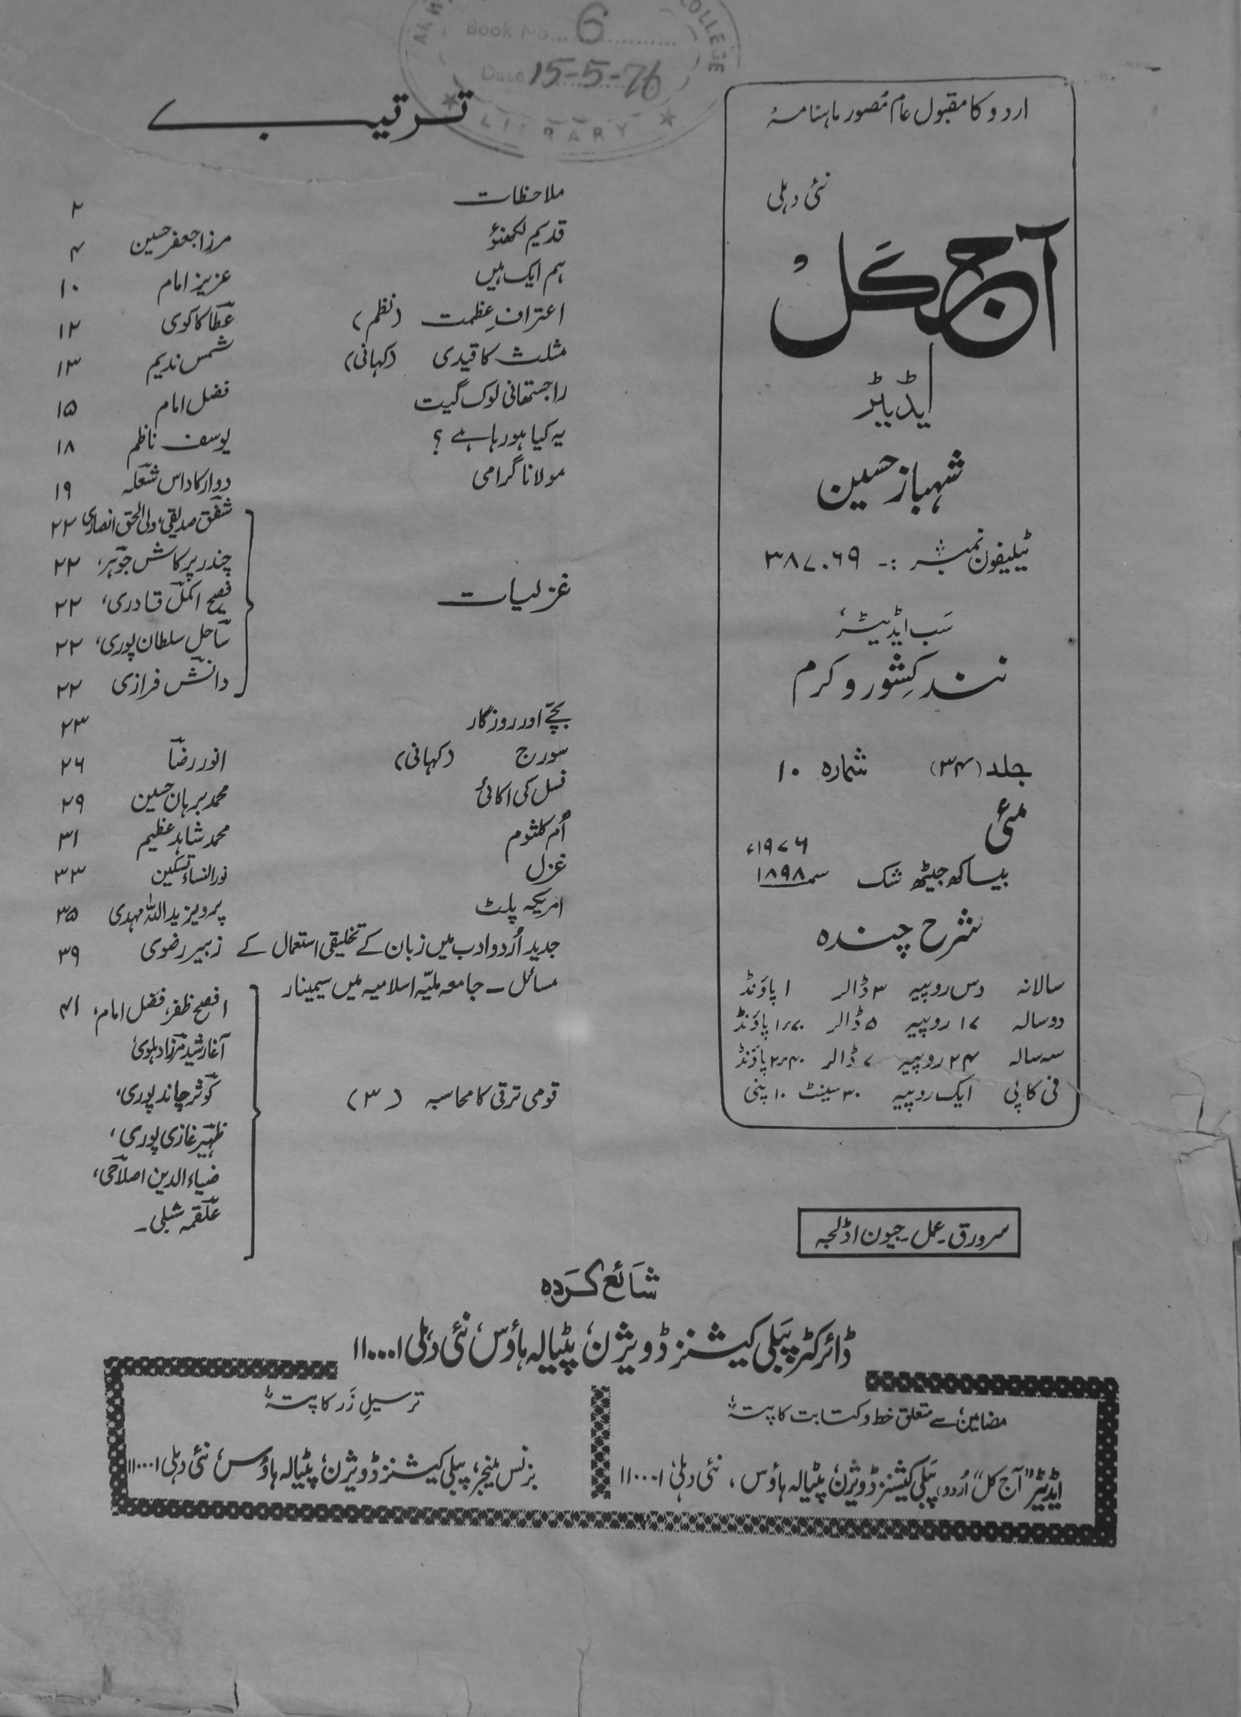 Book No... 6
Date 15-5-76
LIBRARY
COLLEGE
اردو کا مقبول عام مُصور ماہنامہ
نئی دہلی
آج کَل
ایڈیٹر
شہباز حسین
ٹیلیفون نمبر :- ۳۸۷۰۶۹
سَب ایڈیٹر
نند کِشور وکرم
جلد (۳۴) شمارہ ۱۰
مئی
۱۹۷۶ء
بیساکھ جیٹھ شک سمہ ۱۸۹۸
شرح چندہ
سالانہ دس روپیہ ۳ ڈالر ۱ پاؤنڈ
دو سالہ ۱۷ روپیہ ۵ ڈالر ۱٫۷۰ پاؤنڈ
سہ سالہ ۲۴ روپیہ ۷ ڈالر ۲٫۴۰ پاؤنڈ
فی کاپی ایک روپیہ ۳۰ سینٹ ۱۰ پنی
سرورق۔عمل۔جیون اڈلجہ
ترتیب
ملاحظات ۲
قدیم لکھنؤ مرزا جعفر حسین ۴
ہم ایک ہیں عزیز امام ۱۰
اعترافِ عظمت (نظم) عطا کاکوی ۱۲
مثلث کا قیدی (کہانی) شمس ندیم ۱۳
راجستھانی لوک گیت فضل امام ۱۵
یہ کیا ہو رہا ہے ؟ یوسف ناظم ۱۸
مولانا گرامی دوارکا داس شعلہ ۱۹
غزلیات
شفق صدیقی، ولی الحق انصاری ۲۲
چندر پرکاش جوہر، ۲۲
فصیح اکمل قادری، ۲۲
ساحل سلطان پوری، ۲۲
دانش فرازی ۲۲
بچّے اور روزگار ۲۳
سورج (کہانی) انور رضا ۲۶
نسل کی اکائی محمد برہان حسین ۲۹
اُم کلثوم محمد شاہد عظیم ۳۱
غزل نورالنساء تسکین ۳۳
امریکہ پلٹ پرویز ید اللہ مہدی ۳۵
جدید اُردو ادب میں زبان کے تخلیقی استعمال کے زبیر رضوی ۳۹
مسائل – جامعہ ملیّہ اسلامیہ میں سیمینار
قومی ترقی کا محاسبہ (۳)
افصح ظفر، فضل امام، ۴۱
آغا رشید مرزا دہلوی
کوثر چاند پوری،
ظہیر غازی پوری،
ضیاء الدین اصلاحی،
علقمہ شبلی۔
شائع کردہ
ڈائرکٹر پبلی کیشنز ڈویژن، پٹیالہ ہاؤس، نئی دہلی ۱۱۰۰۰۱
مضامین سے متعلق خط و کتابت کا پتہ
ایڈیٹر "آج کل" (اُردو) پبلی کیشنز ڈویژن، پٹیالہ ہاؤس، نئی دہلی ۱۱۰۰۰۱
ترسیلِ زَر کا پتہ
بزنس منیجر، پبلی کیشنز ڈویژن، پٹیالہ ہاؤس، نئی دہلی ۱۱۰۰۰۱